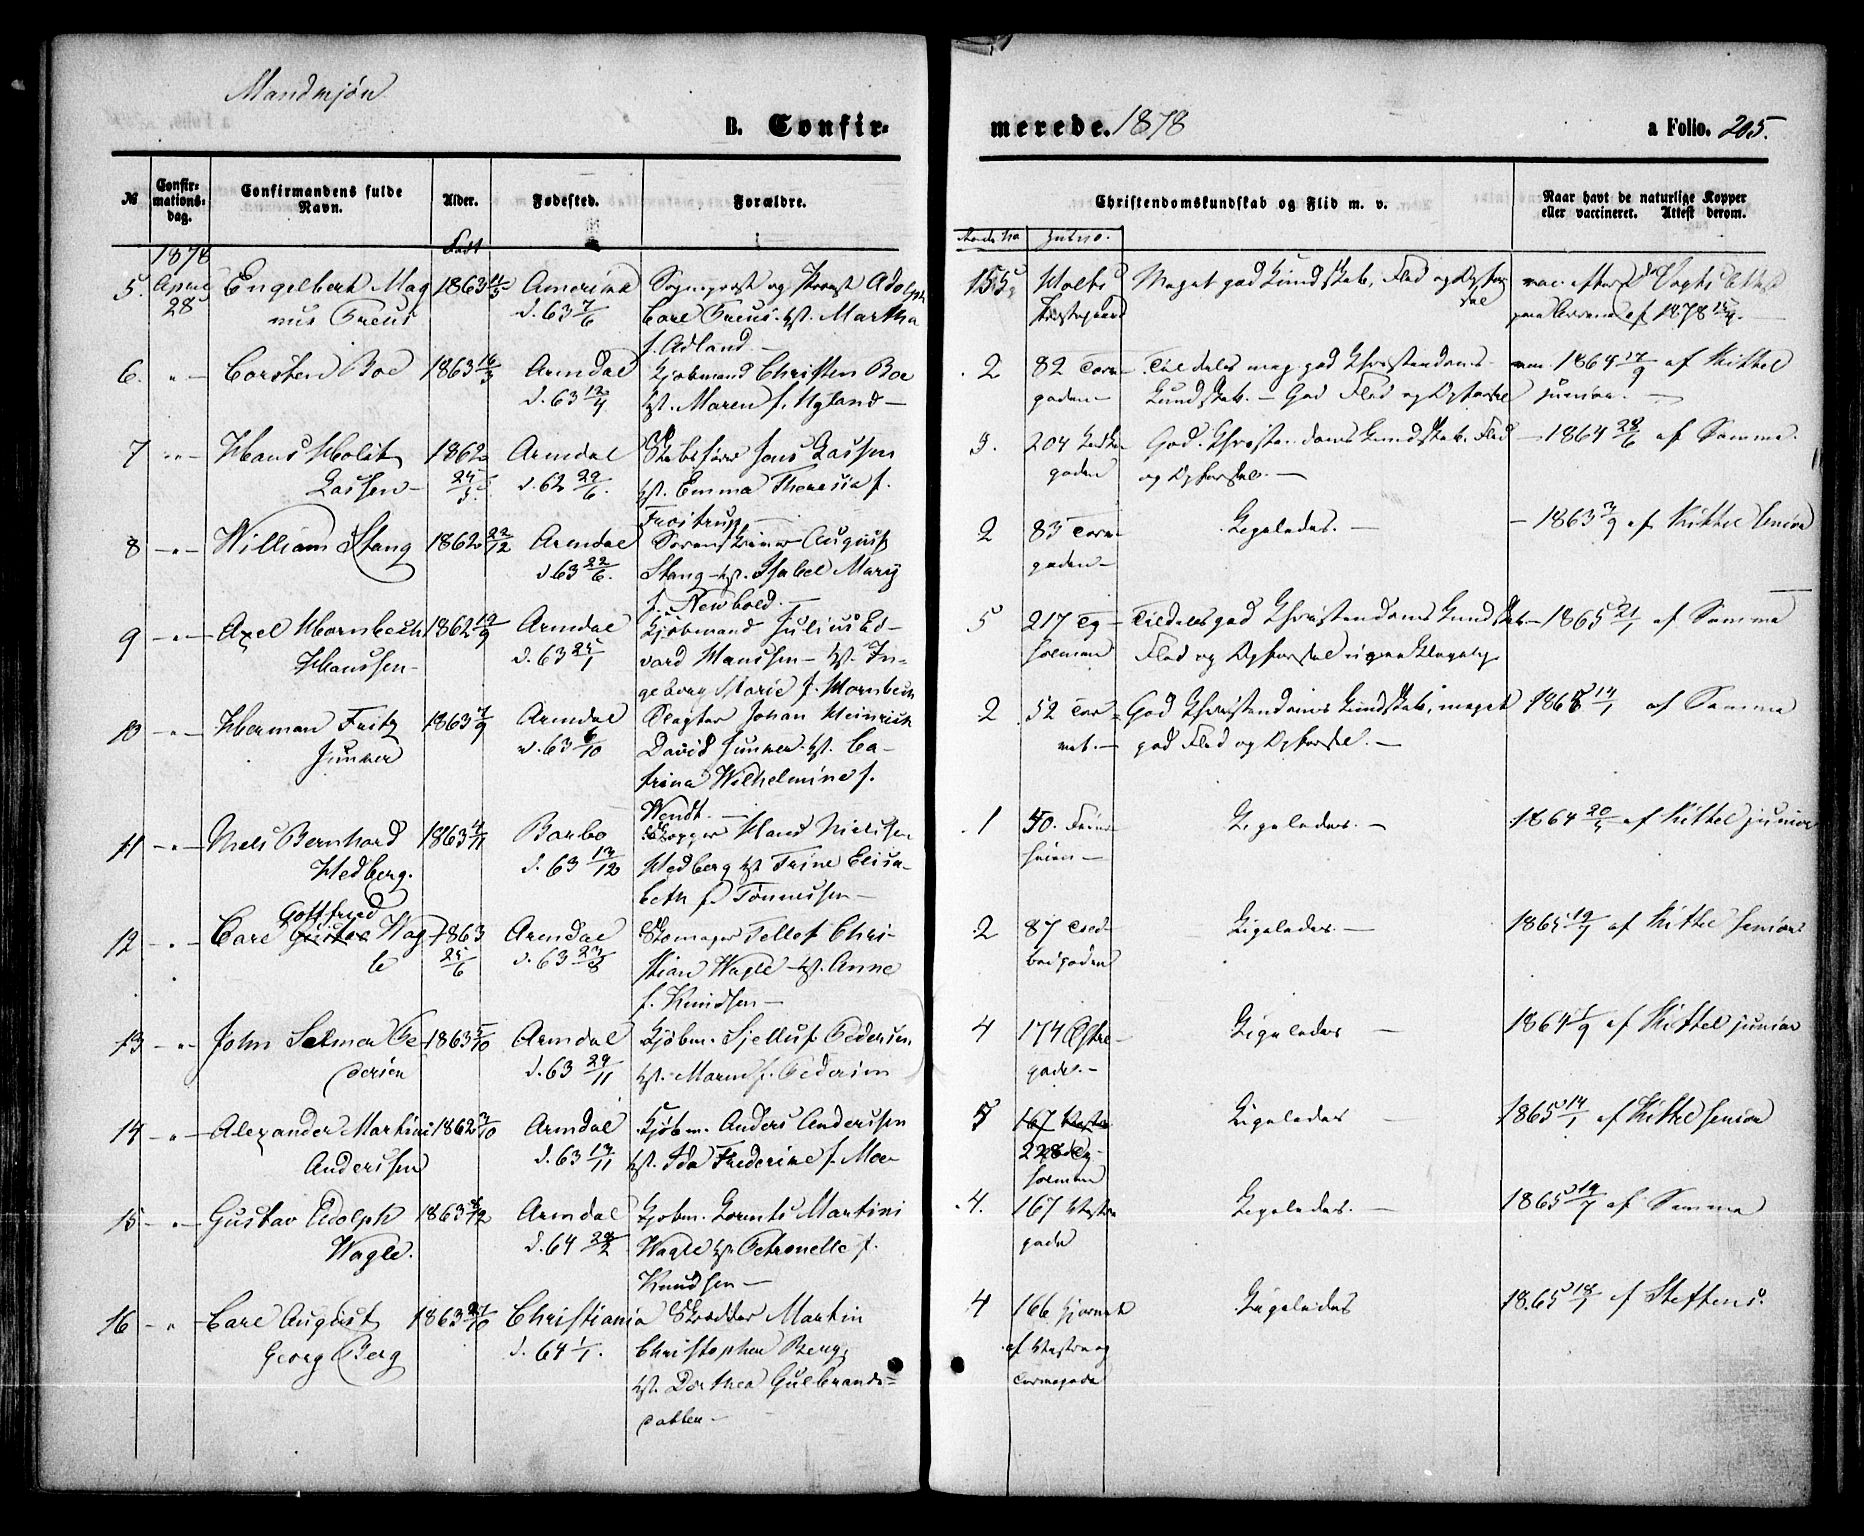 Mandkjøn
B. Confir-
merede. 1878
a Folio. 205.
№
Confir-
mations-
dag.
Confirmandens fulde
Navn.
Alder.
Fødested.
Forældre.
Christendomskundskab og Flid m. v.
Naar havt de naturlige Kopper
eller vaccineret. Attest derom.
1878
Født
5. April 28 Engelbert Mag
nus Preus
1863 11/3
Amerika
d. 63 7/6
Sognepræst og Provst Adolph
Carl Preus. hst. Martha
f. Adland
155
Meget god Kundskab, Flid og Opfør
sel
vac. efter Vogts Attest
af 1878
6. " Carsten Boe
1863 16/3
Arendal
d. 63 12/4
Kjøbmand Christen Boe
hst. Maren f. Ugland
2
82 Torv
gaden
Tildels meg. god Christendoms-
Kundskab. God Flid og Opførsel
vac. 1864 17/9 af Kittel
junior.
7 " Hans Holst
Lassen
1862
Arendal
d. 62 29/6.
Skibsfører Jens Lassen
hst. Emma Theresia f.
Frostrup
3.
204
gaden
God Christendoms Kundskab. Flid
og Opførsel.
1864 28/6 af Samme.
8 " William Stang
1862 22/12
Arendal
d. 63 22/6.
Sorenskriver August
Stang hst. Isabel Mary
f. Newbold.
2
83 Torv
gaden
Ligeledes.
1863 3/9 af Kittel Senior
9 " Axel Hornbech
Hanssen
1862 19/9
Arendal
d. 63 25/1
Kjøbmand Julius Ed-
vard Hanssen hst. In-
geborg Marie f. Hornbech
5
217 Ty
holmen
Tildels god Christendoms Kundskab
Flid og Opførsel
1865 21/1 af Samme
10 " Herman Fritz
Junker
1863 7/9
Arendal
d. 63 6/10
Slagter Johan Heinrich
David Junker hst. Ca-
trina Wilhelmine f.
Wendt.
2
52 Tor
vet.
God Christendoms Kundskab, meget
god Flid og Opførsel.
af Samme
11 " Niels Bernhard
Hedberg.
1863 4/11
Barbo
d. 63 13/12
Hans Nielsen
Hedberg hst. Trine Elisa-
beth f. Tønnessen
1
50.
Ligeledes.
1864 20/5 af Kittel junior
12 " Carl Gustav Gottfried Wag
le
1863
25/6
Arendal
d. 63 23/8
Skomager Tellef Chri-
stian Wagle hst. Anne
f. Knudsen
2
87
Ligeledes
1865 19/7 af Kittel Senior
13 " John Selmer Pe-
dersen
1863 5/10
Arendal
d. 63 29/11
Kjøbm. Sjelluf Pedersen
hst. Maren f. Pedersen
4
174 Østre
gade.
Ligeledes
1864 1/9 af Kittel junior
14 " Alexander Martini
Anderssen
1862 3/10
Arendal
d. 63 13/11
Kjøbm. Anders Anderssen
hst. Ida Frederikke f. Moe
5
167 Vestre
228 Ty-
holmen
Ligeledes
1865 14/1 af Kittel senior
15 " Gustav Adolph
Wagle.
1863 8/12
Arendal
d. 64 28/2
Kjøbm. Lorents Martini
Wagle hst. Petronelle f.
Knudsen
4.
167 Vestre
gade
Ligeledes.
1865 19/7 af Samme
16 " Carl August
Georg Berg
1863 27/10
Christiania
d. 64 1/1.
Skrædder Martin
Christopher Berg,
hst. Dorthea Gulbrands-
datter
4
166 Hjørnet
af Vestre og
Torvegade
Ligeledes
1865 18/7 af Steffens.